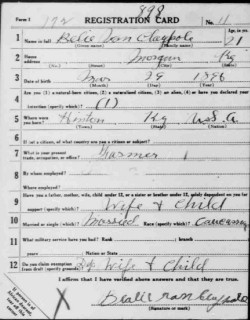 Form 1 172 898 No. 11
REGISTRATION CARD
1 Name in full Van Claypole Age, in yrs. 21
(Given name) (Family name)
2 Home address Morgan Ky
(No.) (Street) (City) (State)
3 Date of birth 29 1896
(Month) (Day) (Year)
4 Are you (1) a natural-born citizen, (2) a naturalized citizen, (3) an alien, (4) or have you declared your
intention (specify which)? (1)
5 Where were you born? Hinton Ky U.S.A.
(Town) (State) (Nation)
6 If not a citizen, of what country are you a citizen or subject?
7 What is your present trade, occupation, or office? Farmer
8 By whom employed?
Where employed?
9 Have you a father, mother, wife, child under 12, or a sister or brother under 12, solely dependent on you for
support (specify which)? Wife & Child
10 Married or single (which)? Married Race (specify which)? Caucasian
11 What military service have you had? Rank branch
years Nation or State
12 Do you claim exemption from draft (specify grounds)? Wife & Child
I affirm that I have verified above answers and that they are true.
Van Claypole
(Signature or mark)